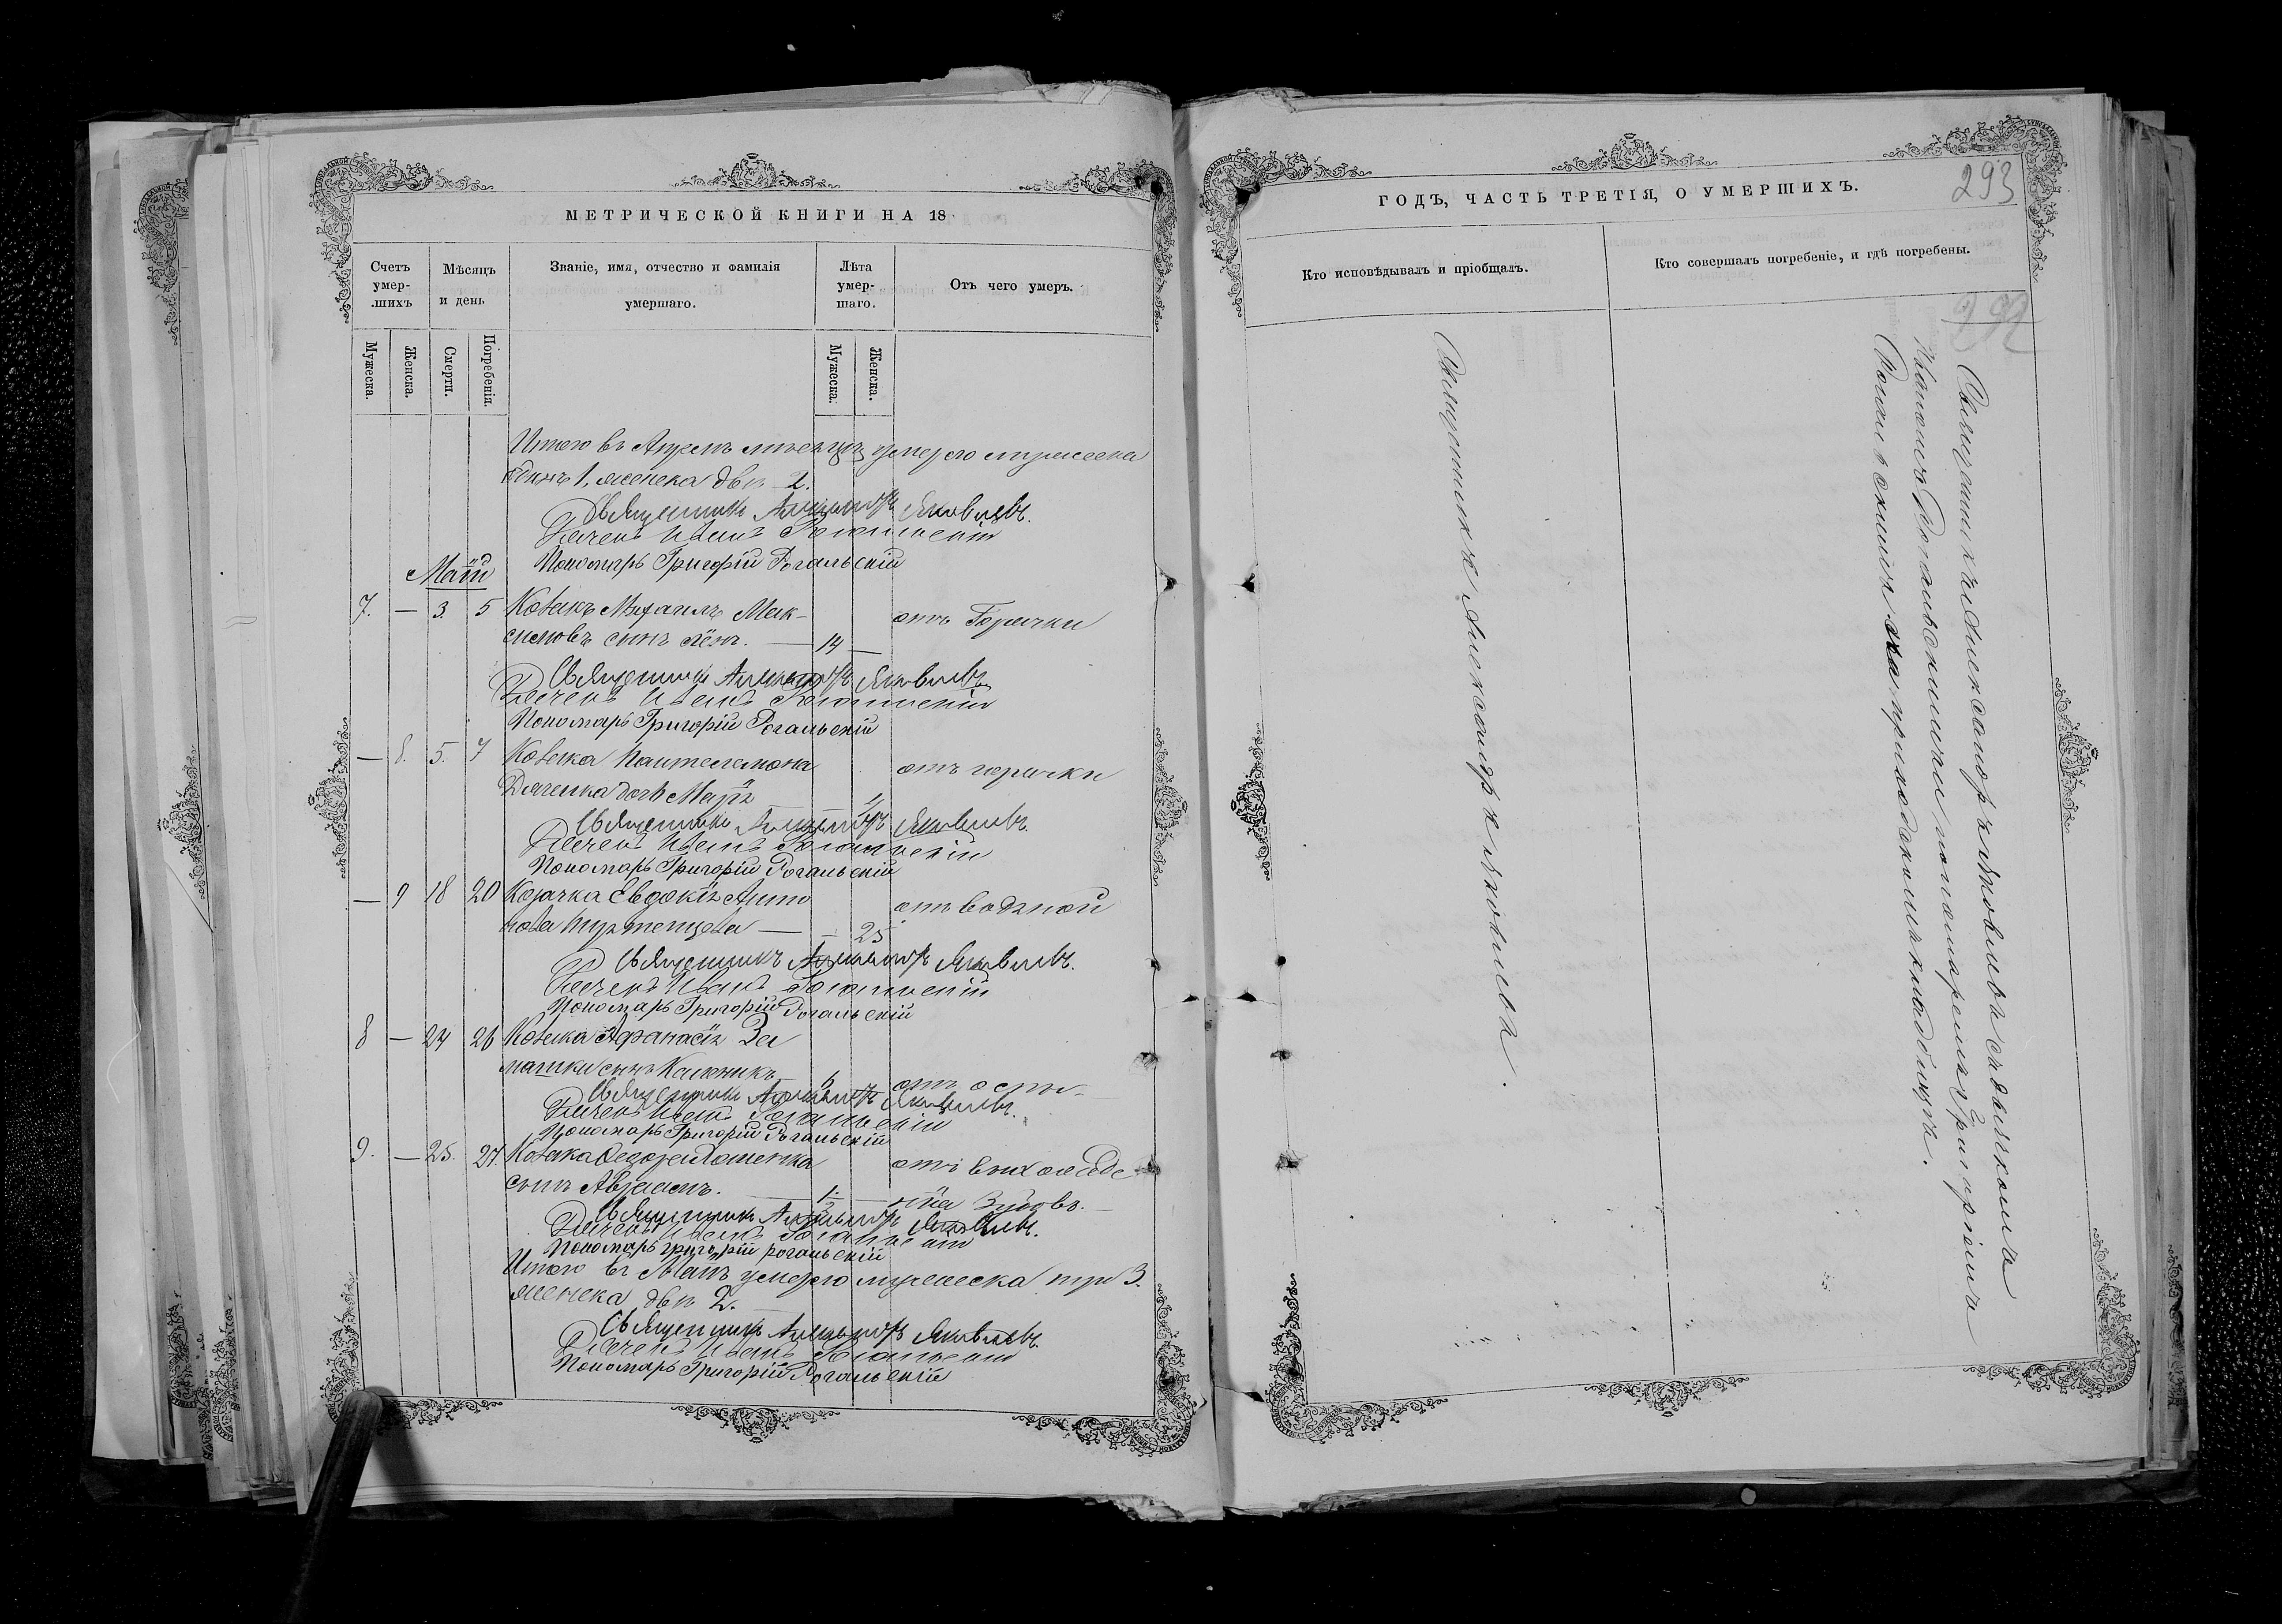 МЕТРИЧЕСКОЙ КНИГИ НА 18
Счетъ умер-шихъ
Мѣсяцъ и день
Званіе, имя, отчество и фамилія умершаго.
Лѣта умер-шаго.
Отъ чего умеръ.
Мужеска.
Женска.
Смерти.
Погребенія.
Мужеска.
Женска.
Итого въ Апрелѣ месяцѣ умерло мужеска
одинъ 1, женска двѣ 2.
Священникъ Александръ Яковлевъ.
Дячекъ Иванъ Рогальскій
Пономарь Григорій Рогальскій
Маій
7. — 3. 5 Козакъ Михаилъ Мак-
симовъ сынъ 14 — отъ Горячки
Священникъ Александръ Яковлевъ
Дячекъ Иванъ Рогальскій
Пономарь Григорій Рогальскій
— 8. 5. 7 Козака Пантелемона отъ горячки
Дяченка дочь Марія
Священникъ Александръ Яковлевъ.
Дячекъ Иванъ Рогальскій
Пономарь Григорій Рогальскій
— 9 18 20 Козачка Евдокія Анто отъ водяной
нова — 25
Священникъ Александръ Яковлевъ.
Дячекъ Иванъ Рогальскій
Пономарь Григорій Рогальскій
8 — 24 26 Козака Афанасія За
сынъ отъ оспы
Священникъ Александръ Яковлевъ.
Дячекъ Иванъ Рогальскій
Пономарь Григорій Рогальскій
9. — 25. 27. Козака Федора отъ
сынъ Авраамъ. зубовъ.
Священникъ Александръ Яковлевъ.
Дячекъ Иванъ Рогальскій
Пономарь григорій рогальскій
Итого въ Маѣ умерло мужеска три 3.
женска двѣ 2.
Священникъ Александръ Яковлевъ.
Дячекъ Иванъ Рогальскій
Пономарь Григорій Рогальскій
ГОДЪ, ЧАСТЬ ТРЕТІЯ, О УМЕРШИХЪ.
293
Кто исповѣдывалъ и пріобщалъ.
Кто совершалъ погребеніе, и гдѣ погребены.
Священникъ Александръ Яковлевъ.
Священникъ Александръ Яковлевъ съ дьячкомъ
Иваномъ Рогальскимъ и пономаремъ Григоріемъ
Рогальскимъ на приходскомъ кладбищѣ.